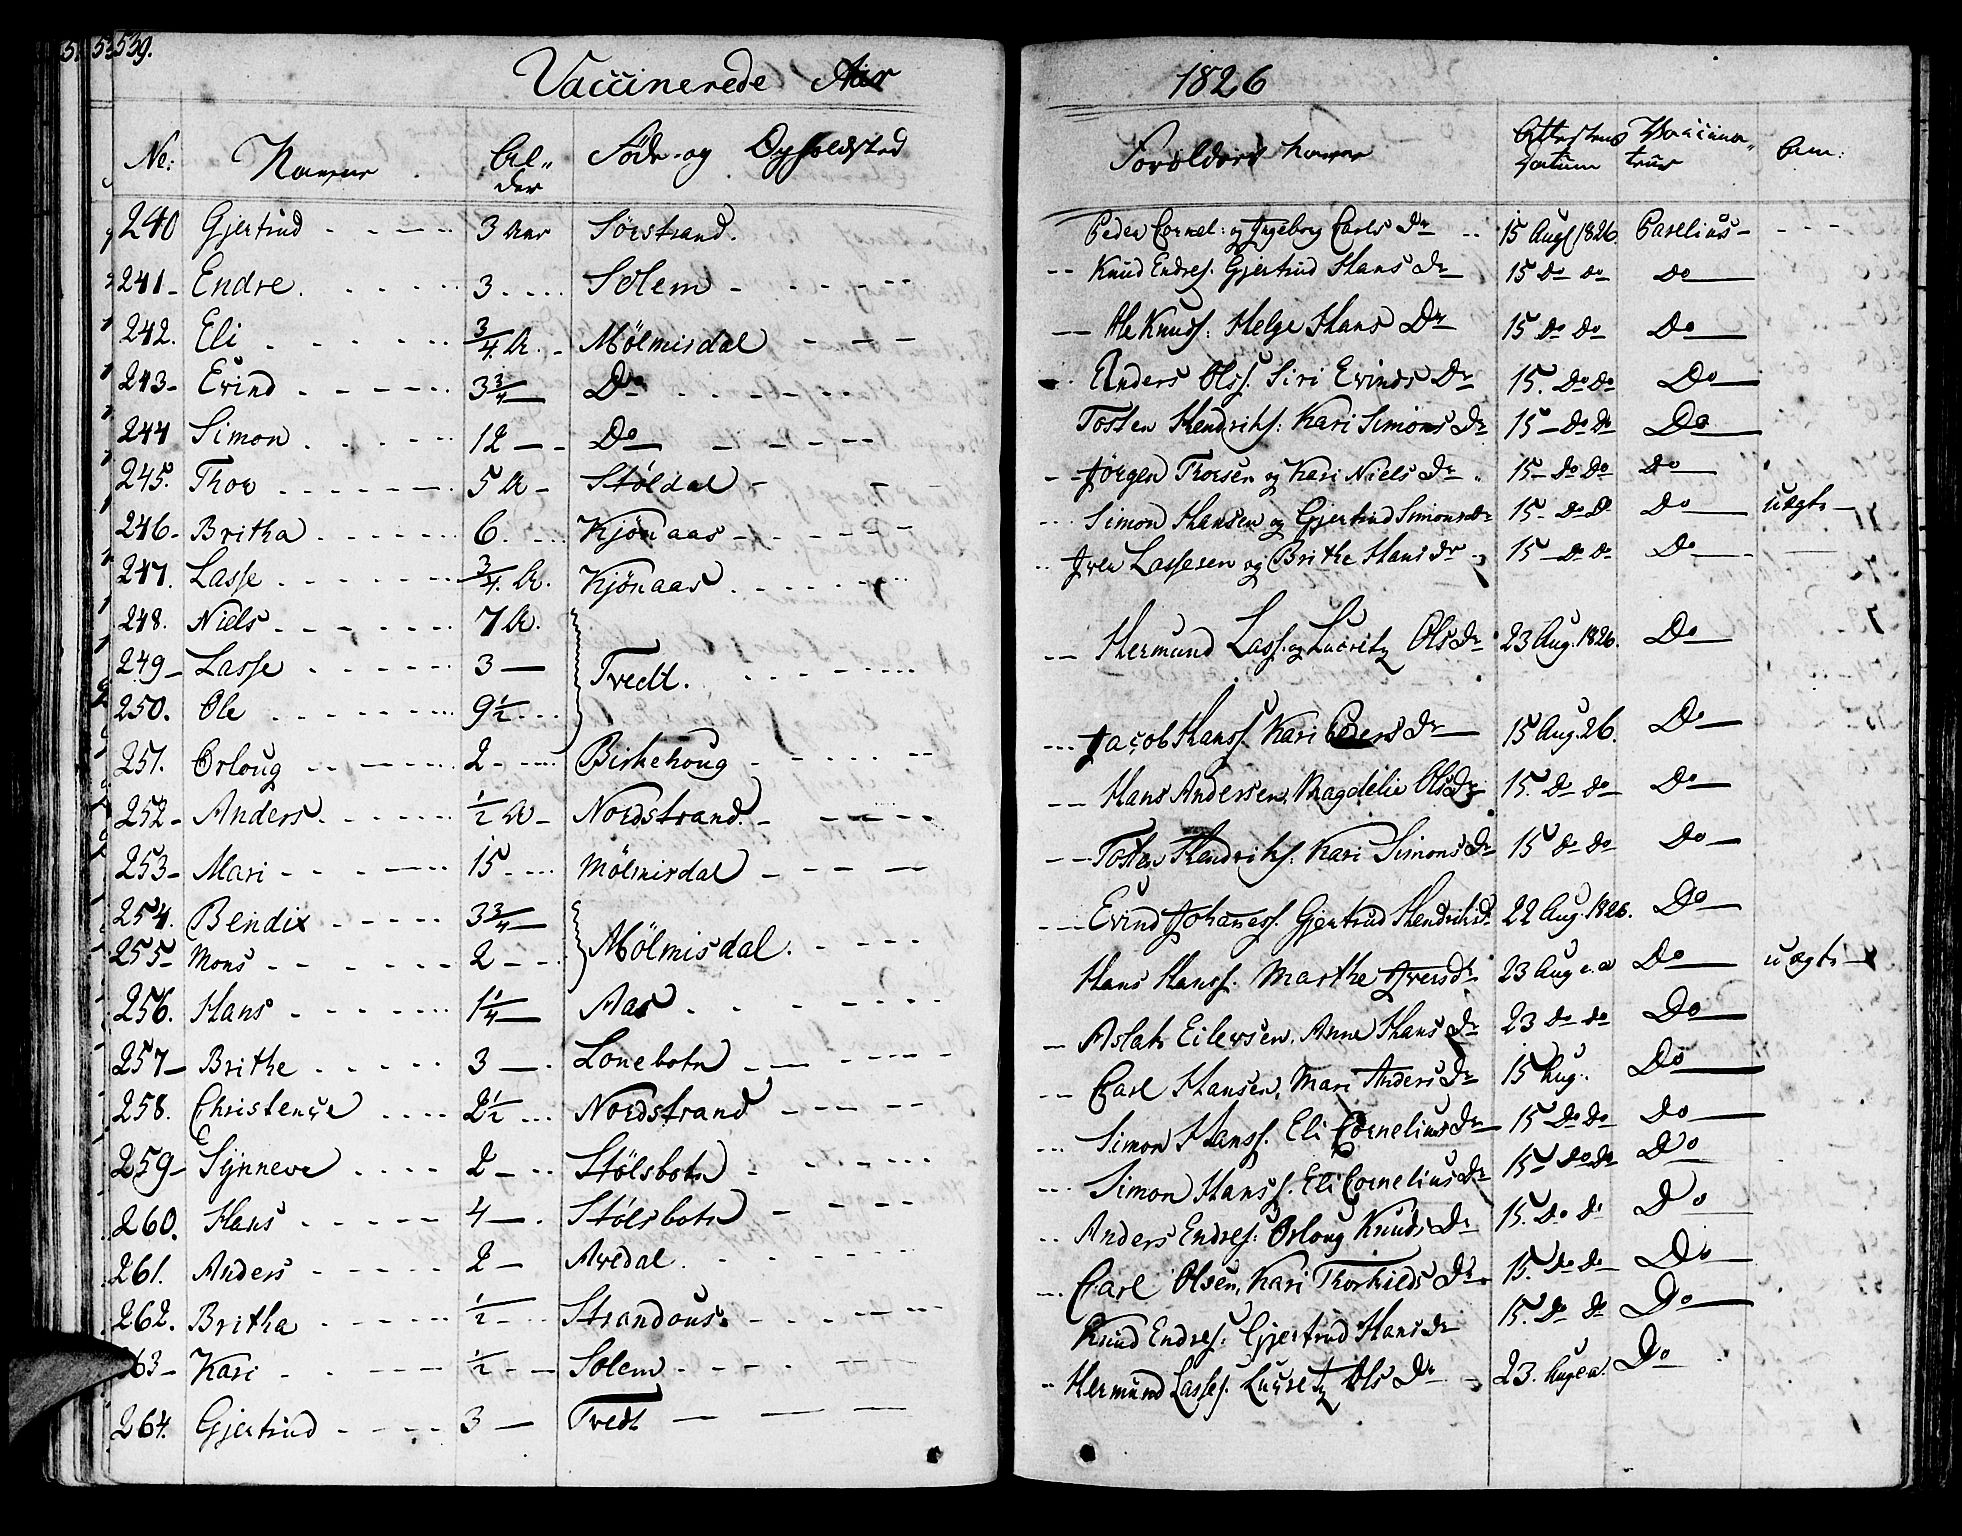 539.
Vaccinerede Aar 1826
No: Navne Al- der Føde- og Opholdsted Forældres Navne Attestens Datum Vaccina- teur Anm:
240 Gjertrud 3 Aar Sørstrand. Peder Cornel: og Ingeborg Carls Dr 15 Aug 1826. Parelius
241 Endre. 3 Solem Knud Endres. Gjertrud Hans Dr 15 do do do
242. Eli 3/4 A. Mölmisdal Ole Knuds: Helge Hans Dr 15 do do Do
243 Evind 3 3/4 Do Anders Ols. Siri Evinds Dr 15. do do Do
244 Simon 12 Do Tosten Hendriks: Kari Simons Dr 15 do do Do
245. Thor 5 A Støldal Jørgen Thorsen og Kari Niels Dr 15 do do do
246 Britha 6. Kjønaas Simon Hansen og Gjertrud Simons dr 15 do do Do uægte
247. Lasse 3/4. A. Kjønaas Iver Lassesen og Brithe Hans dr 15 do do Do
248. Niels 7 A.
249 Lasse 3 Tvedt. Hermund Lass. og Lucretz Ols dr 23 Aug. 1826. Do
250. Ole 9 1/2
251. Orloug 2 Birkehoug Jacob Hans. Kari Peders dr 15 Aug. 26. Do
252 Anders 1/2 A Nordstrand. Hans Andersen, Magdelie Ols Dr 15. do do Do
253 Mari 15 Mölmisdal Tosten Hendriks: Kari Simons dr 15 do do Do
254. Bendix 3 3/4 Evind Johanes. Gjertrud Hendriks d. 22 Aug. 1826. Do
255 Mons 2 Mölmisdal. Hans Hans. Marthe Ivers dr 23 Aug e.a Do uægte
256. Hans 1 1/4 Aas Aslak Eilersen, Anne Hans Dr 23 do do Do
257 Brithe 3 Lonebotn Carl Hansen, Mari Anders Dr 15 Aug. Do
258. Christence 2 1/2 Nordstrand Simon Hans. Eli Cornelius dr 15 do do Do
259 Synneve 2 Stølsbotn Simon Hans. Eli Cornelius dr 15 do do Do
260. Hans 4 Stølsbotn Anders Endres: Orloug Knuds Dr 15. do do Do
261. Anders 2 Avedal. Carl Olsen, Kari Thorkilds Dr 15. do do Do
262. Britha 1/2 Strandous. Knud Endres: Gjertrud Hans dr 15. do do Do
63 Kari 1/2 Solem Hermund Lasses. Lucretz Ols Dr 23. Aug e.a. Do
264. Gjertrud 3 Tvedt